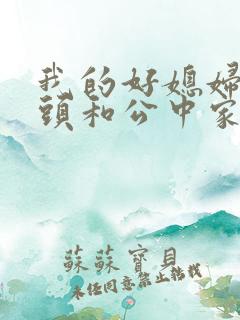 我的好媳婦
頭和公中家
蘇蘇寶貝
未任同意禁止轉載